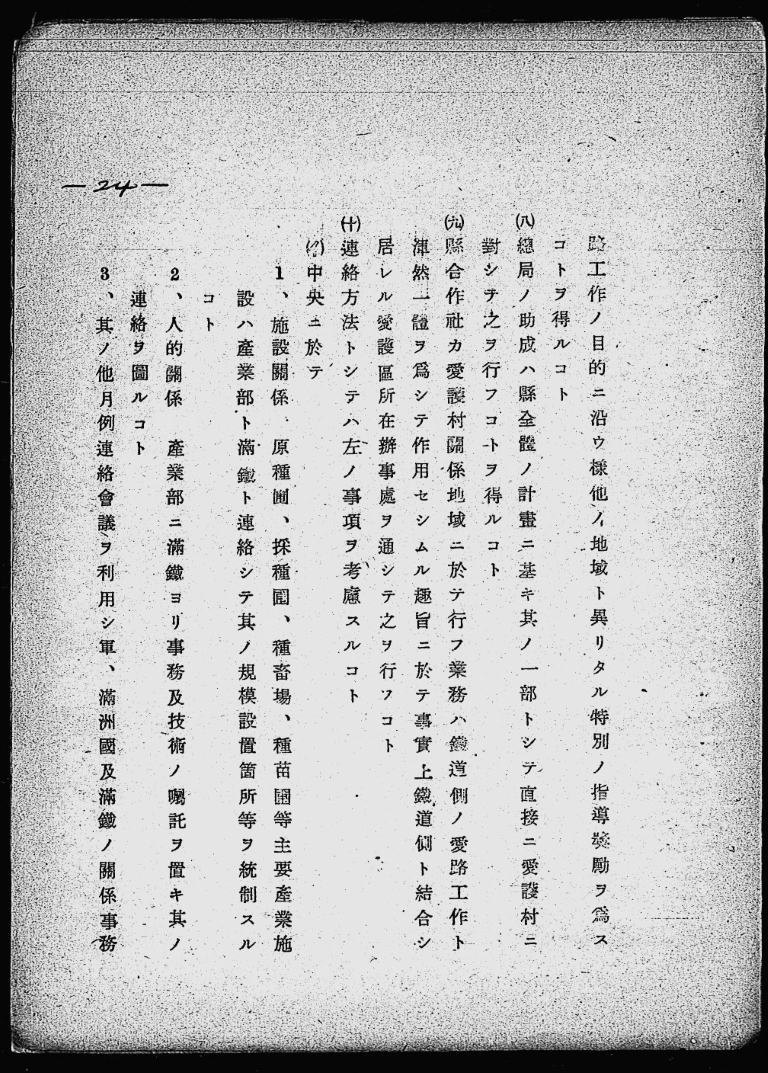 —24—
路工作ノ目的ニ沿ウ樣他ノ地域ト異リタル特別ノ指導奬勵ヲ爲ス
コトヲ得ルコト
㈧總局ノ助成ハ縣全體ノ計畫ニ基キ其ノ一部トシテ直接ニ愛護村ニ
對シテ之ヲ行フコトヲ得ルコト
㈨縣合作社カ愛護村關係地域ニ於テ行フ業務ハ鐵道側ノ愛路工作ト
渾然一體ヲ爲シテ作用セシムル趣旨ニ於テ事實上鐵道側ト結合シ
居レル愛護區所在辦事處ヲ通シテ之ヲ行フコト
㈩連絡方法トシテハ左ノ事項ヲ考慮スルコト
(イ)中央ニ於テ
1、施設關係、原種圃、採種圃、種畜場、種苗圃等主要產業施
設ハ產業部ト滿鐵ト連絡シテ其ノ規模設置箇所等ヲ統制スル
コト
2、人的關係 產業部ニ滿鐵ヨリ事務及技術ノ囑託ヲ置キ其ノ
連絡ヲ圖ルコト
3、其ノ他月例連絡會議ヲ利用シ軍、滿洲國及滿鐵ノ關係事務